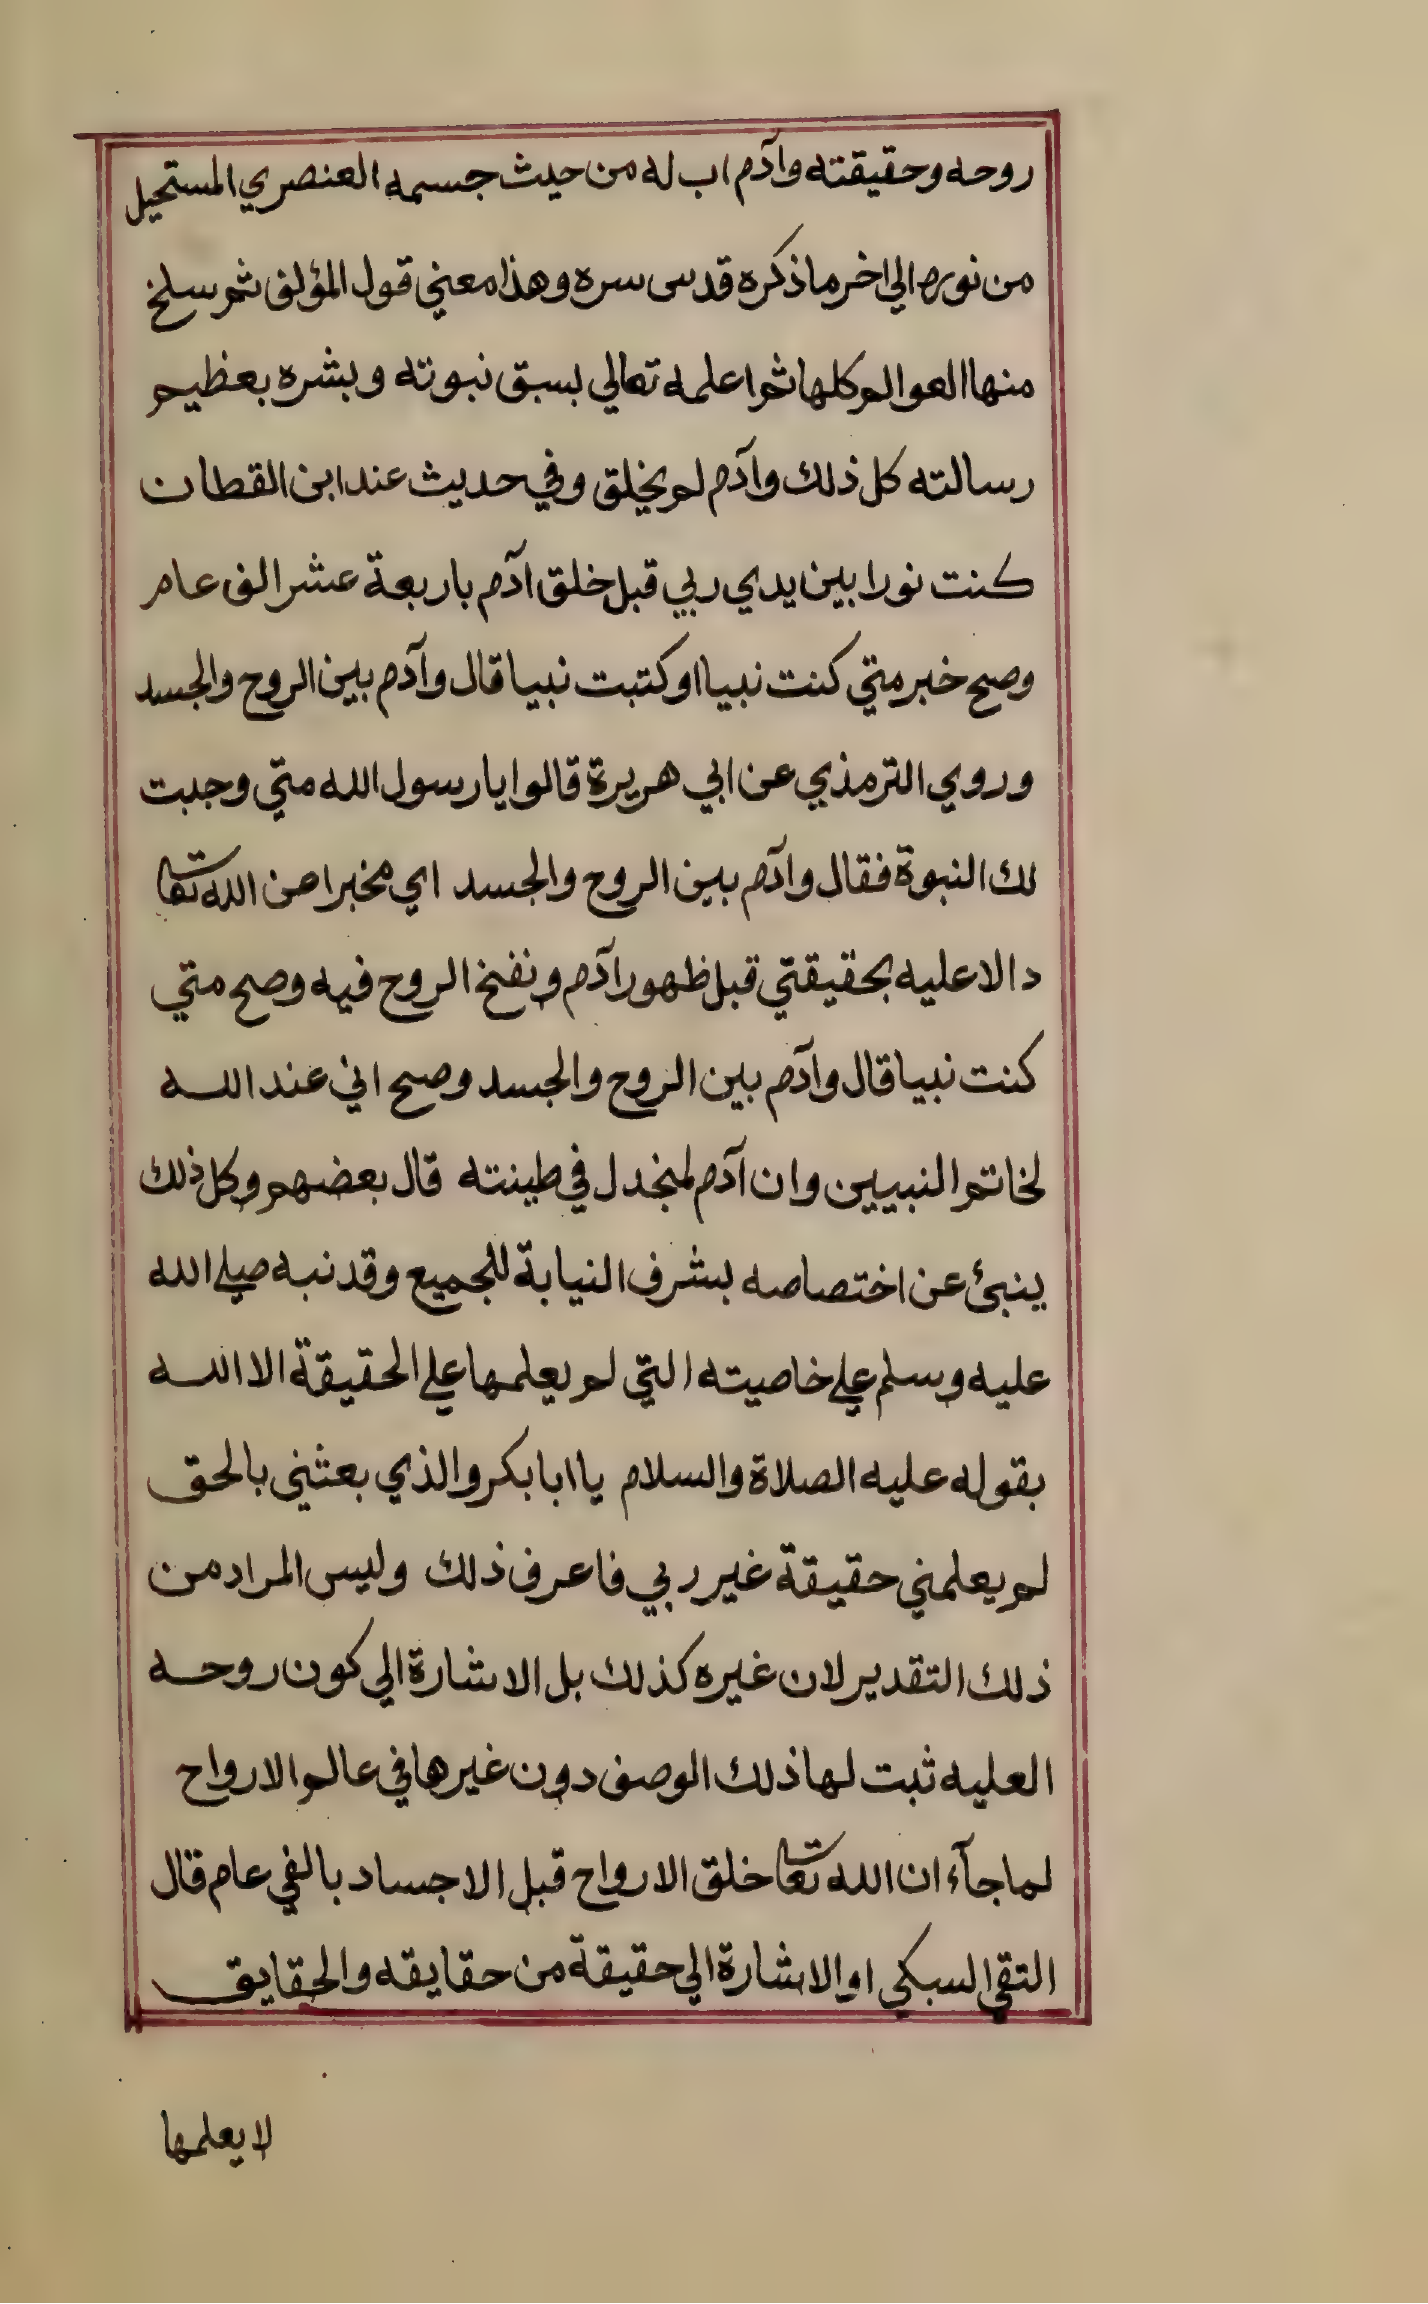 روحه وحقيقته وآدم اب له من حيث جسمه العنصري المستحيل
من نوره الي اخر ما ذكره قدس سره وهذا معني قول المؤلف ثم سلخ
منها العوالم كلها ثم اعلمه تعالي بسبق نبوته وبشره بعظيم
رسالته كل ذلك وآدم لم يخلق وفي حديث عند ابن القطان
كنت نورا بين يدي ربي قبل خلق آدم باربعة عشر الف عام
وصح خبر متي كنت نبيا او كتبت نبيا قال وآدم بين الروح والجسد
وروي الترمذي عن ابي هريرة قالوا يا رسول الله متي وجبت
لك النبوة فقال وآدم بين الروح والجسد اي مخبرا عن الله تعا
دالا عليه بحقيقتي قبل ظهور آدم ونفخ الروح فيه وصح متي
كنت نبيا قال وآدم بين الروح والجسد وصح اني عند الله
لخاتم النبيين وان آدم لمنجدل في طينته قال بعضهم وكل ذلك
ينبئ عن اختصاصه بشرف النيابة للجميع وقد نبه صلي الله
عليه وسلم علي خاصيته التي لم يعلمها علي الحقيقة الا الله
بقوله عليه الصلاة والسلام يا ابا بكر والذي بعثني بالحق
لم يعلمني حقيقة غير ربي فاعرف ذلك وليس المراد من
ذلك التقدير لان غيره كذلك بل الاشارة الي كون روحه
العليه ثبت لها ذلك الوصف دون غيرها في عالم الارواح
لما جآء ان الله تعا خلق الارواح قبل الاجساد بالفي عام قال
التقي السبكي او الاشارة الي حقيقة من حقايقه والحقايق
لا يعلمها